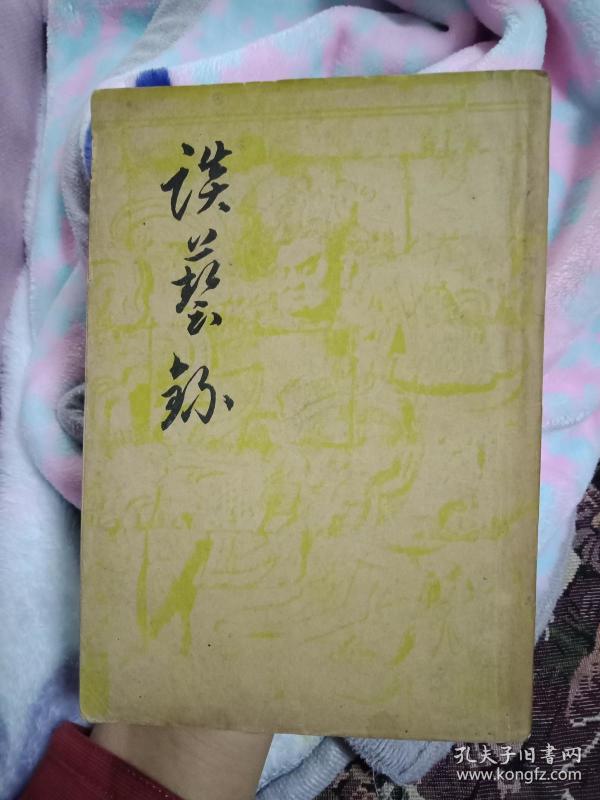 談藝錄
孔夫子旧书网
www.kongfz.com